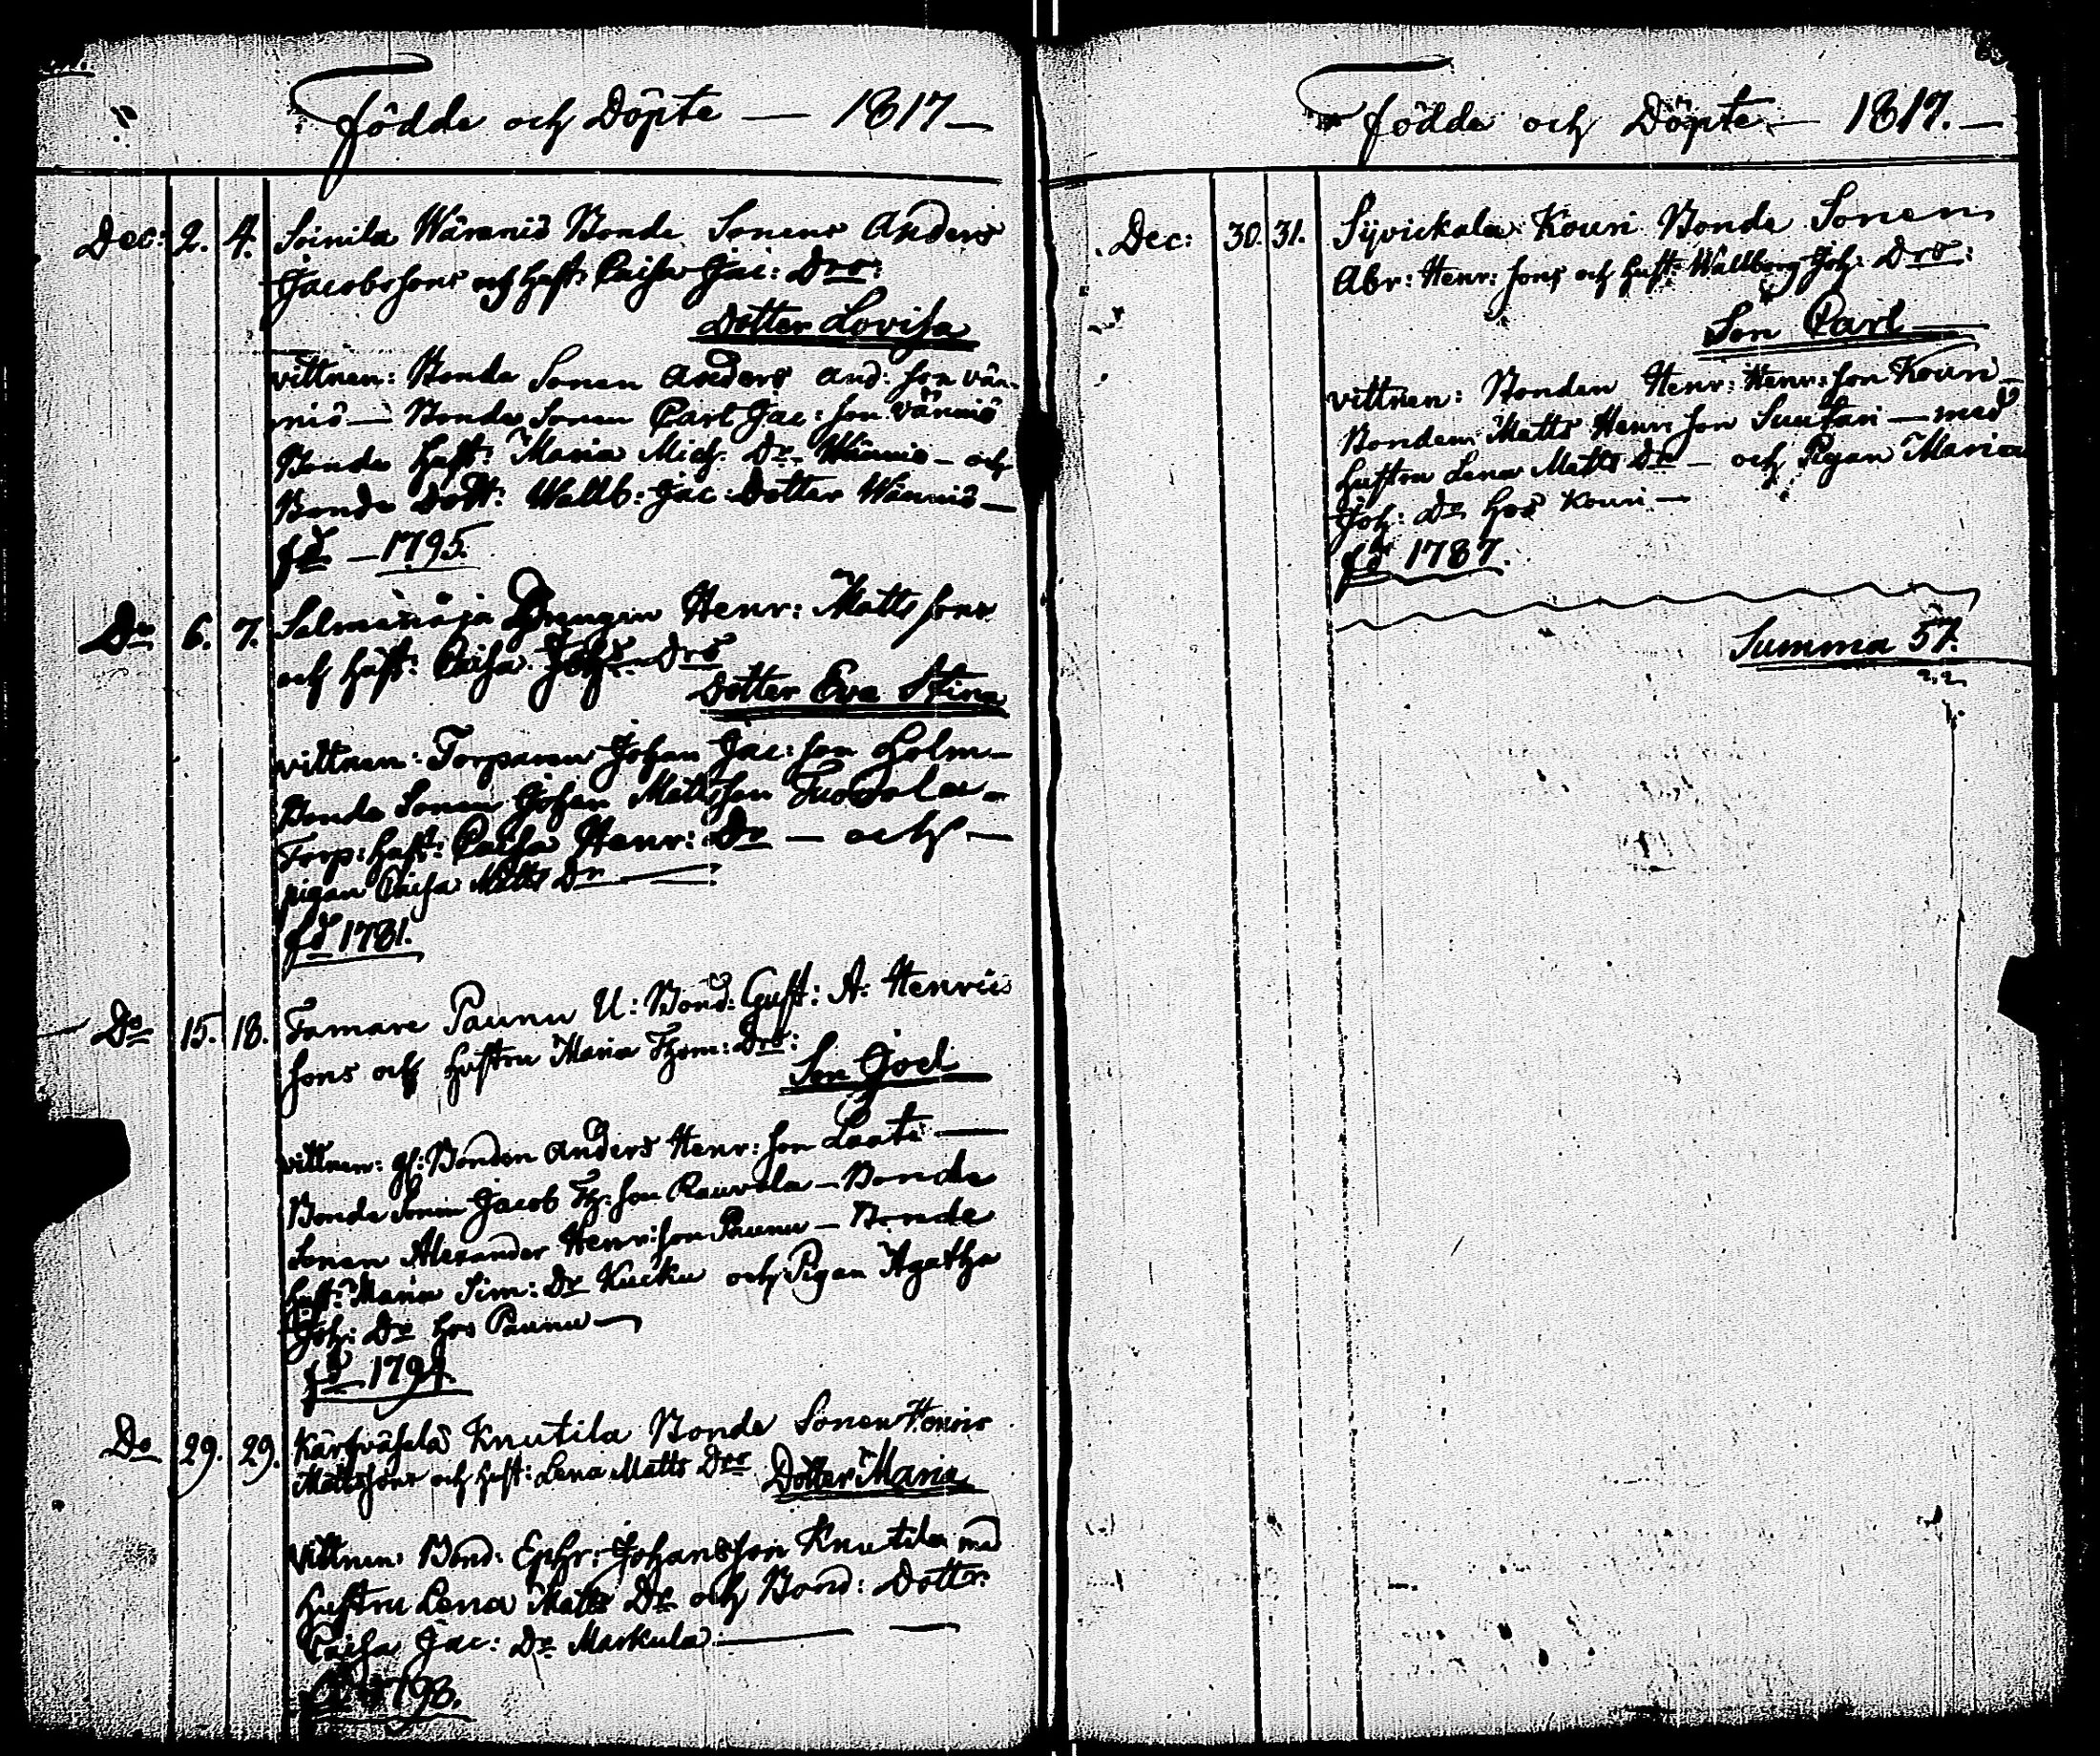 Födde och Döpte — 1817 —
Dec: 2. 4. Soinila Wännis Bonde Sonens Anders
Jacobssons och Hust: Caisa Jac: Drs:
Dotter Lovisa
vittnen: Bonde Sonen Anders And: son Vän-
nis — Bonde Sonen Carl Jac: son Vännis
Bonde Hust: Maria Mich. Dr Wännis — och
Bonde Dott: Wallb: Jac: Dotter Wännis —
fd — 1795.
Do 6. 7. Salmenoja Drengen Henr: Matts sons
och Hust: Caisa Joh: Drs
Dotter Eva Stina
vittnen: Torparen Johan Jac: son Holm —
Bonde Sonen Johan Mattsson —
Torp: Hust: Caisa Henr: Dr — och —
pigan Caisa Matts Dr —
fd 1781.
Do 15. 18. Tamare Paunu U: Bond: Gust: A: Henrics
sons och Hustru Maria Thom: Drs:
Son Joel
vittnen: gl: Bonden Anders Henr: son Laati —
Bonde Sonen Jacob Th: son Rauvola — Bonde
Sonen Alexander Henr: son Paunu — Bonde
Hust: Maria Sim: Dr Kucku och Pigan Agatha
Joh: Dr hos Paunu —
fd 1794.
Do 29. 29. Kärfväselä Knutila Bonde Sonen Henrics
Mattssons och Hust: Lena Matts Drs Dotter Maria
Vittnen: Bond: Ephr: Johansson Knutila med
Hustru Lena Matts Dr och Bond: Dottr:
Caisa Jac: Dr Markula —
1798.
Födde och Döpte — 1817. —
Dec: 30. 31. Syvickala Kouri Bonde Sonens
Abr: Henr: sons och Hust: Wallborg Joh: Drs:
Son Carl
vittnen: Bonden Henr: Henr: son Kouri —
Bonden Matts Henr: son Suutari — med
Hustru Lena Matts Dr — och Pigan Maria
Joh: Dr hos Kouri —
fd 1787.
Summa 57.